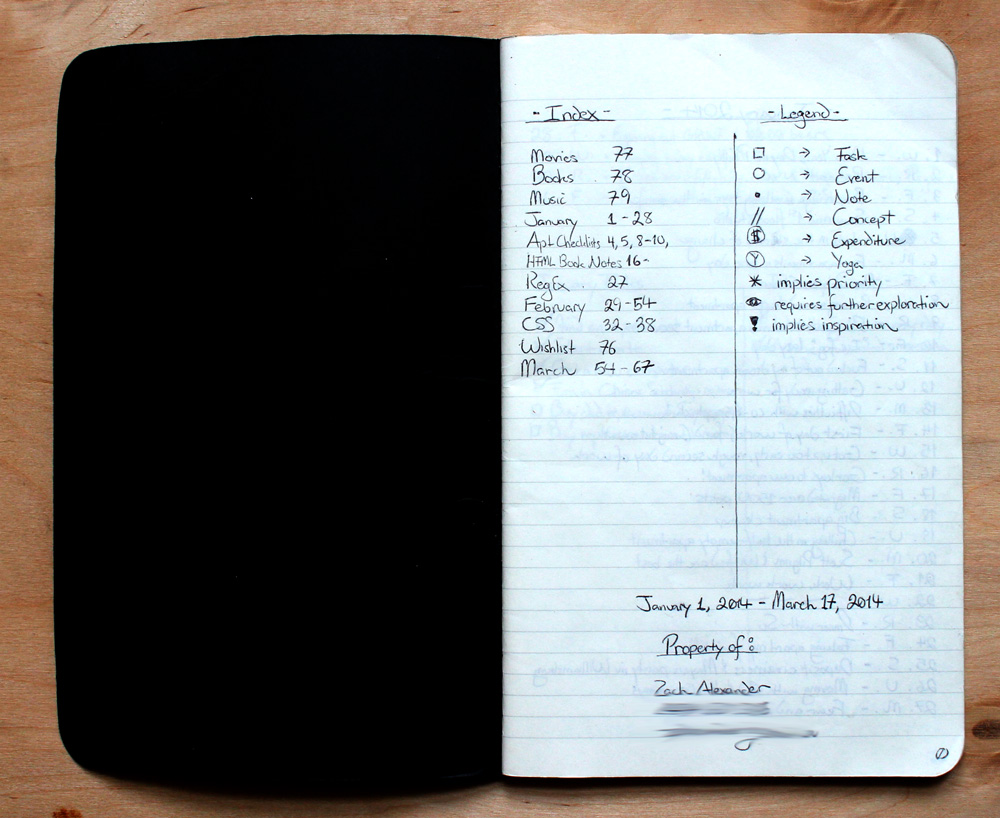 - Index -
Movies 77
Books 78
Music 79
January 1 - 28
Apt Checklists 4, 5, 8-10,
HTML Book Notes 16-
RegEx 27
February 29-54
CSS 32-38
Wishlist 76
March 54-67
- Legend -
□ → Task
○ → Event
• → Note
// → Concept
$ → Expenditure
Y → Yoga
* implies priority
requires further exploration
! implies inspiration
January 1, 2014 - March 17, 2014
Property of:
Zach Alexander